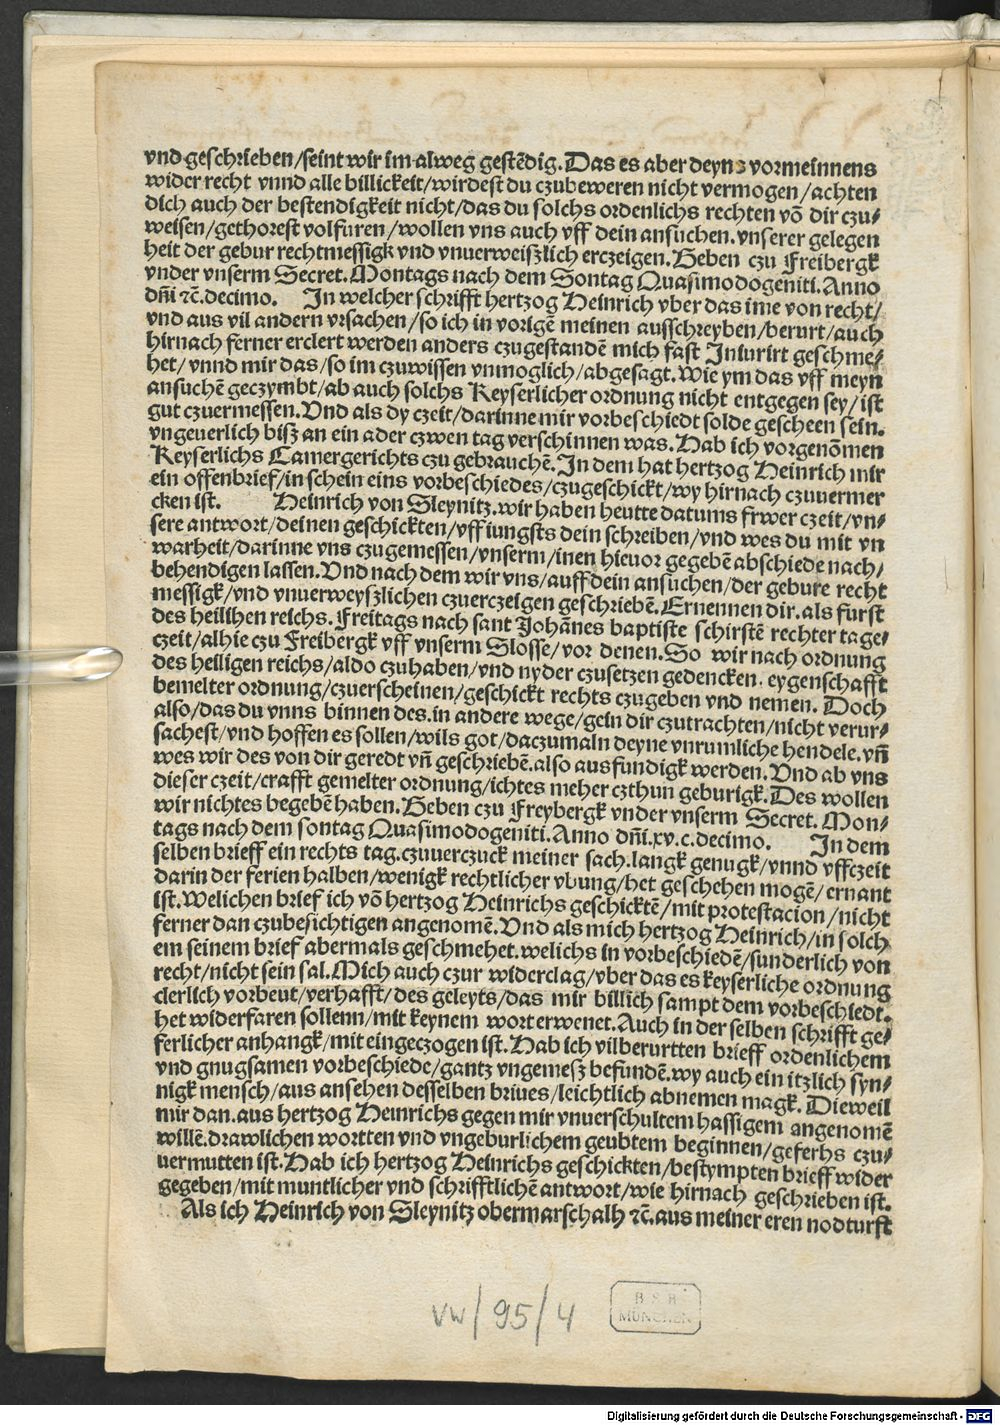 vnd geschrieben/seint wir im alweg gestēdig. Das es aber deyns vormeinnens
wider recht vnnd alle billickeit/wirdest du czubeweren nicht vermogen/achten
dich auch der bestendigkeit nicht/das du solchs ordenlichs rechten vō dir czu⸗
weisen/gethorest volfuren/wollen vns auch vff dein ansuchen. vnserer gelegen
heit der gebur rechtmessigk vnd vnuerweiszlich erczeigen. Geben czu Freibergk
vnder vnserm Secret. Montags nach dem Sontag Quasimodogeniti. Anno
dn̄i ⁊c. decimo. In welcher schrifft hertzog Heinrich vber das ime von recht/
vnd aus vil andern vrsachen/so ich in vorigē meinen ausschreyben/berurt/auch
hirnach ferner erclert werden anders czugestandē mich fast Iniurirt geschme⸗
het/vnnd mir das/so im czuwissen vnmoglich/abgesagt. Wie ym das vff meyn
ansuchē geczymbt/ab auch solchs Keyserlicher ordnung nicht entgegen sey/ist
gut czuermessen. Vnd als dy czeit/darinne mir vorbeschiedt solde gescheen sein.
vngeuerlich bisz an ein ader czwen tag verschinnen was. Hab ich vorgenōmen
Keyserlichs Camergerichts czu gebrauchē. In dem hat hertzog Heinrich mir
ein offenbrief/in schein eins vorbeschiedes/czugeschickt/wy hirnach czuuermer
cken ist. Heinrich von Sleynitz. wir haben heutte datums frwer czeit/vn⸗
sere antwort/deinen geschickten/vff iungsts dein schreiben/vnd wes du mit vn
warheit/darinne vns czugemessen/vnserm/inen hieuor gegebē abschiede nach/
behendigen lassen. Vnd nach dem wir vns/auff dein ansuchen/der gebure recht
messigk/vnd vnuerweyszlichen czuerczeigen geschriebē. Ernennen dir. als furst
des heilihen reichs. Freitags nach sant Johānes baptiste schirstē rechter tage⸗
czeit/alhie czu Freibergk vff vnserm Slosse/vor denen. So wir nach ordnung
des heiligen reichs/aldo czuhaben/vnd nyder czusetzen gedencken. eygenschafft
bemelter ordnung/czuerscheinen/geschickt rechts czugeben vnd nemen. Doch
also/das du vnns binnen des. in andere wege/gein dir czutrachten/nicht verur⸗
sachest/vnd hoffen es sollen/wils got/daczumaln deyne vnrumliche hendele. vn̄
wes wir des von dir geredt vn̄ geschriebē. also ausfundigk werden. Vnd ab vns
dieser czeit/crafft gemelter ordnung/ichtes meher czthun geburigk. Des wollen
wir nichtes begebē haben. Geben czu Freybergk vnder vnserm Secret. Mon⸗
tags nach dem sontag Quasimodogeniti. Anno dn̄i. xv. c. decimo. In dem
selben brieff ein rechts tag. czuuerczuck meiner sach. langk genugk/vnnd vffczeit
darin der ferien halben/wenigk rechtlicher vbung/het geschehen mogē/ernant
ist. Welichen brief ich vō hertzog Heinrichs geschicktē/mit protestacion/nicht
ferner dan czubesichtigen angenomē. Vnd als mich hertzog Heinrich/in solch
em seinem brief abermals geschmehet. welichs in vorbeschiedē/sunderlich von
recht/nicht sein sal. Mich auch czur widerclag/vber das es keyserliche ordnung
clerlich vorbeut/verhafft/des geleyts/das mir billich sampt dem vorbeschiedt.
het widerfaren sollenn/mit keynem wort erwenet. Auch in der selben schrifft ge⸗
ferlicher anhangk/mit eingeczogen ist. Hab ich vilberurtten brieff ordenlichem
vnd gnugsamen vorbeschiede/gantz vngemesz befundē. wy auch ein itzlich syn⸗
nigk mensch/aus ansehen desselben briues/leichtlich abnemen magk. Dieweil
mir dan. aus hertzog Heinrichs gegen mir vnuerschultem hassigem angenomē
willē. drawlichen wortten vnd vngeburlichem geubtem beginnen/geferhs czu⸗
uermutten ist. Hab ich hertzog Heinrichs geschickten/bestympten brieff wider
gegeben/mit muntlicher vnd schrifftlichē antwort/wie hirnach geschrieben ist.
Als ich Heinrich von Sleynitz obermarschalh ⁊c. aus meiner eren nodturft
vw/95/4
B S B
MÜNCHEN
Digitalisierung gefördert durch die Deutsche Forschungsgemeinschaft - DFG